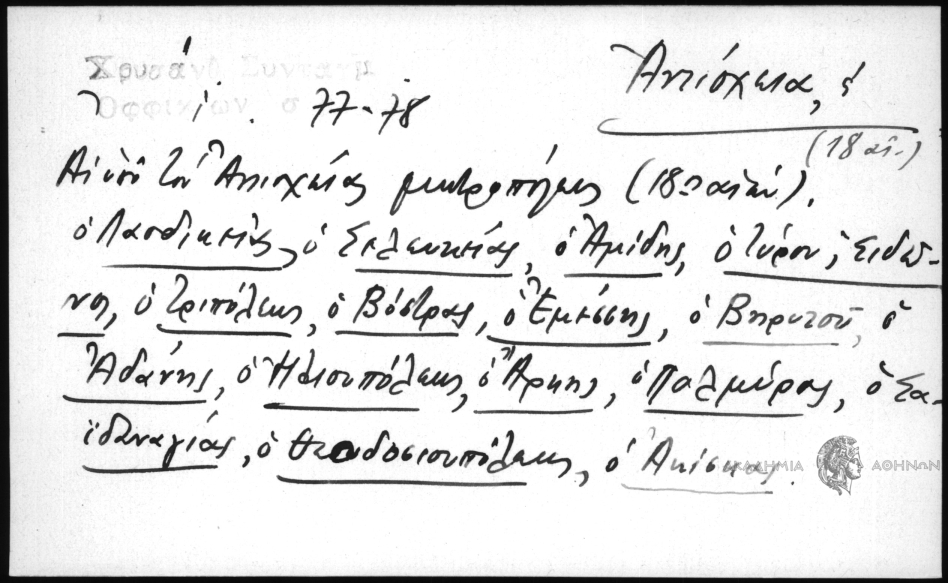 Χρυσάνθ Συνταγμ
Ἀντιόχεια, ἡ
Ὀφφικίων σ 77-78
(18 αἰ.)
Αἱ ὑπὸ τὸν Ἀντιοχείας μητροπόλεις (18ος αἰών).
ὁ Λαοδικείας, ὁ Σελευκείας, ὁ Ἀμίδης, ὁ Τύρου, Σιδῶ-
νος, ὁ Τριπόλεως, ὁ Βόστρας, ὁ Ἐμέσσης, ὁ Βηρυτοῦ, ὁ
Ἀδάνης, ὁ Ἡλιουπόλεως, ὁ Ἄρκης, ὁ Παλμύρας, ὁ Σα-
ϊδαναγίας, ὁ Θεοδοσιουπόλεως, ὁ Ἀκίσκας.
ΑΚΑΔΗΜΙΑ ΑΘΗΝΩΝ